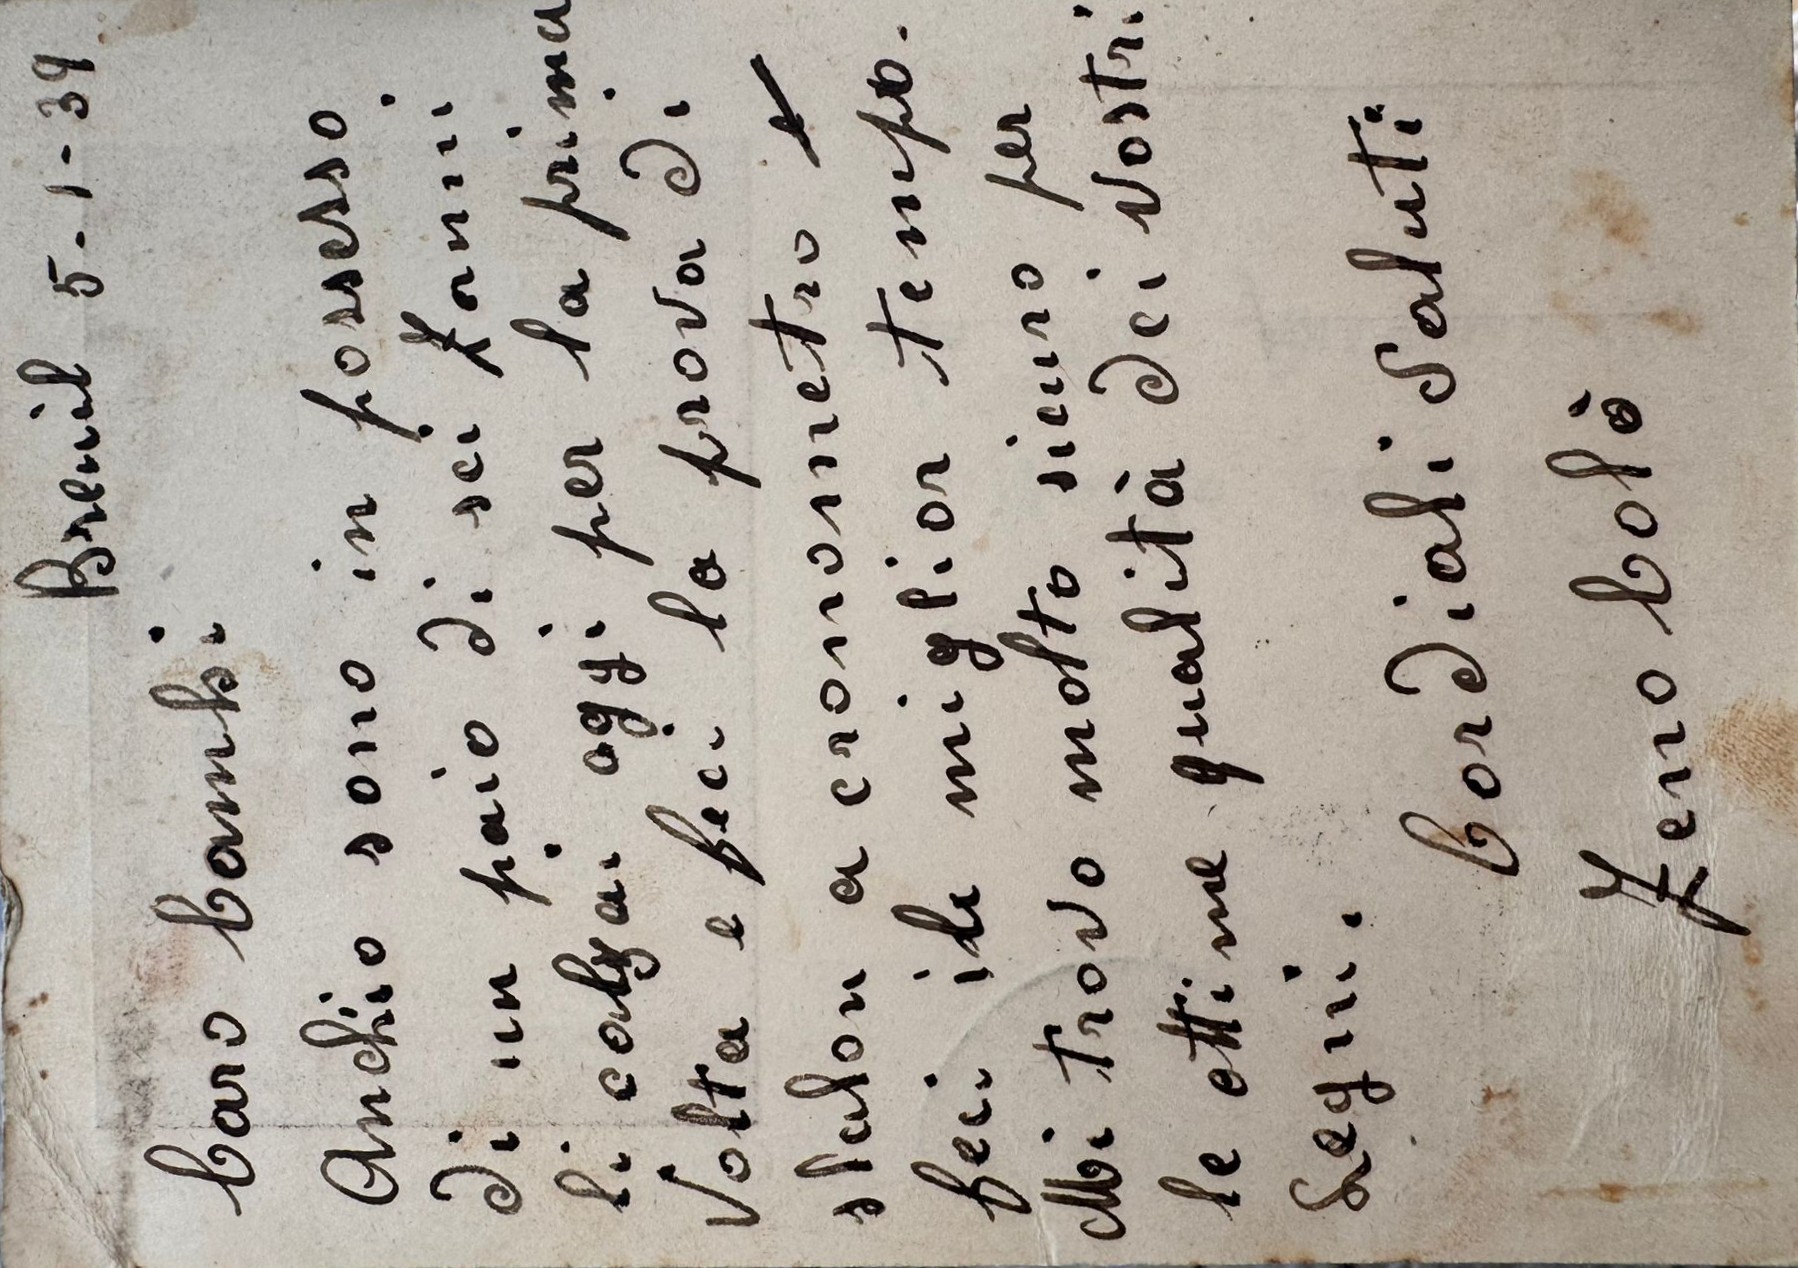 Breuil 5-1-39
Caro Cambi
Anchio sono in possesso
di un paio di sci Zanni.
li calzai oggi per la prima
Volta e feci la prova di
slalon a cronometro e
feci il miglior tempo.
Mi trovo molto sicuro per
le ottime qualità dei Vostri
Legni.
Cordiali Saluti
Zeno Colò